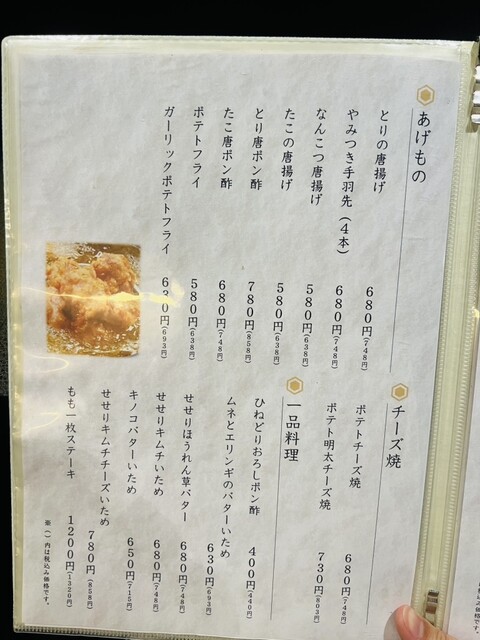 あげもの
とりの唐揚げ 680円(748円)
やみつき手羽先(4本) 680円(748円)
なんこつ唐揚げ 580円(638円)
たこの唐揚げ 580円(638円)
とり唐ポン酢 780円(858円)
たこ唐ポン酢 680円(748円)
ポテトフライ 580円(638円)
ガーリックポテトフライ 630円(693円)
チーズ焼
ポテトチーズ焼 680円(748円)
ポテト明太チーズ焼 730円(803円)
一品料理
ひねどりおろしポン酢 400円(440円)
ムネとエリンギのバターいため 630円(693円)
せせりほうれん草バター 680円(748円)
せせりキムチいため 680円(748円)
キノコバターいため 650円(715円)
せせりキムチチーズいため 780円(858円)
もも一枚ステーキ 1200円(1320円)
※( )内は税込み価格です。